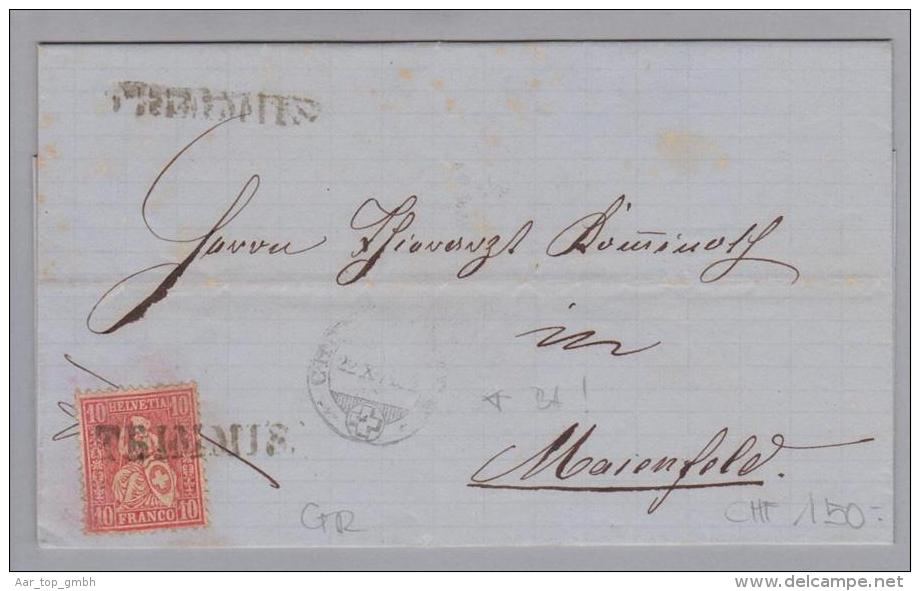 TRIMMIS
Herrn Thierarzt
in
Maienfeld.
10 HELVETIA 10
TRIMMIS
10 FRANCO 10
22 X
BA!
GR
CHF 150.-
Aar_top_gmbh
www.delcampe.net